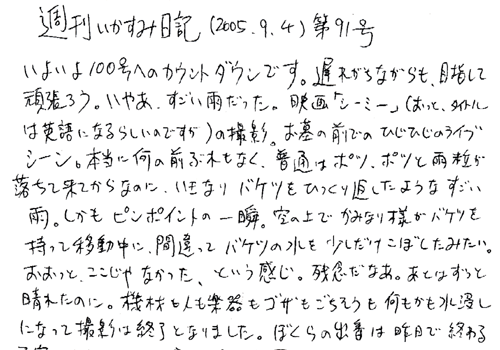 週刊いかすみ日記(2005.9.4)第91号
いよいよ100号へのカウントダウンです。遅れがちながらも、目指して
頑張ろう。いやあ、すごい雨だった。映画「シーミー」(おっと、タイトル
は英語になるらしいのですが)の撮影。お墓の前でのひじひじのライブ
シーン。本当に何の前ぶれもなく、普通はポツ、ポツと雨粒が
落ちて来てからなのに、いきなりバケツをひっくり返したようなすごい
雨。しかもピンポイントの一瞬。空の上でかみなり様がバケツを
持って移動中に、間違ってバケツの水を少しだけこぼしたみたい。
おおっと、ここじゃなかった、という感じ。残念だなあ。あとはずっと
晴れたのに。機材も人も楽器もゴザもごちそうも何もかも水浸し
になって撮影は終了となりました。ぼくらの出番は昨日で終わる